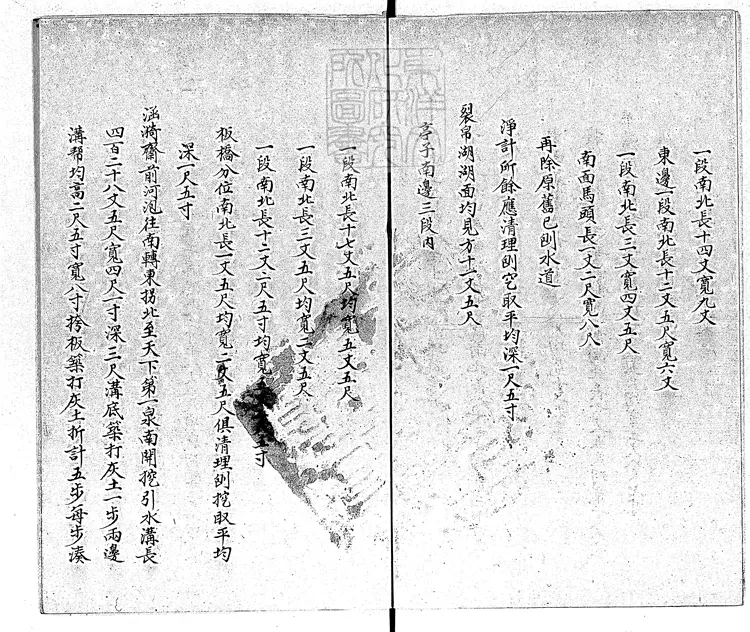 一段南北長十四丈寬九丈
東邊一段南北長十二丈五尺寬六丈
一段南北長三丈寬四丈五尺
南面馬頭長二丈二尺寬八尺
再除原舊已刨水道
淨計所餘應清理刨挖取平均深一尺五寸
裂帛湖湖面均見方十一丈五尺
亭子南邊三段內
一段南北長十七丈五尺均寬五丈五尺
一段南北長三丈五尺均寬二丈五尺
一段南北長十二丈二尺五寸均寬五寸
板橋分位南北長一丈五尺均寬二丈五尺俱清理刨挖取平均
深一尺五寸
涵漪齋前河泡往南轉東拐北至天下第一泉南開挖引水溝長
四百二十八丈五尺寬四尺一寸深三尺溝底築打灰土一步兩邊
溝幫均高二尺五寸寬八寸挎板築打灰土折計五步每步湊